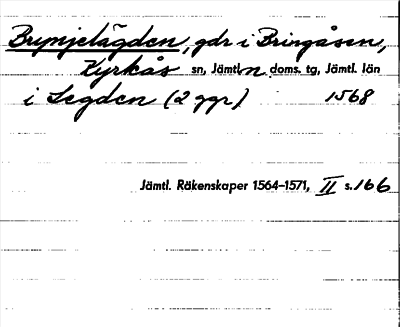 Brynjelägden, gdr i Bringåsen,
Kyrkås sn, Jämtl. n. doms. tg, Jämtl. län
i Legden (2 ggr) 1568
Jämtl. Räkenskaper 1564–1571, II s. 166